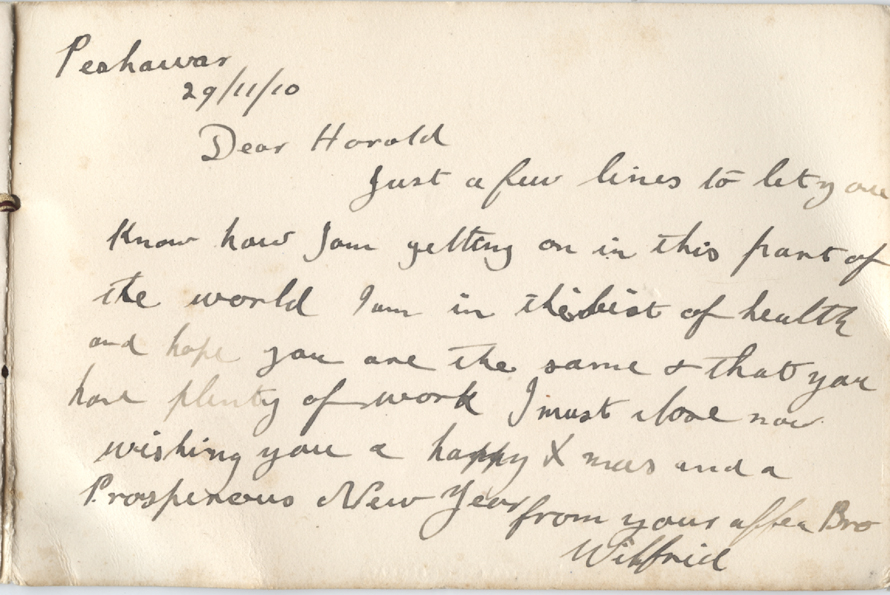 Peshawar
29/11/10
Dear Harold
Just a few lines to let you
Know how I am getting on in this part of
the world I am in the best of health
and hope you are the same & that you
have plenty of work I must close now
wishing you a happy Xmas and a
Prosperous New Year from your affec Bro
Wilfrid